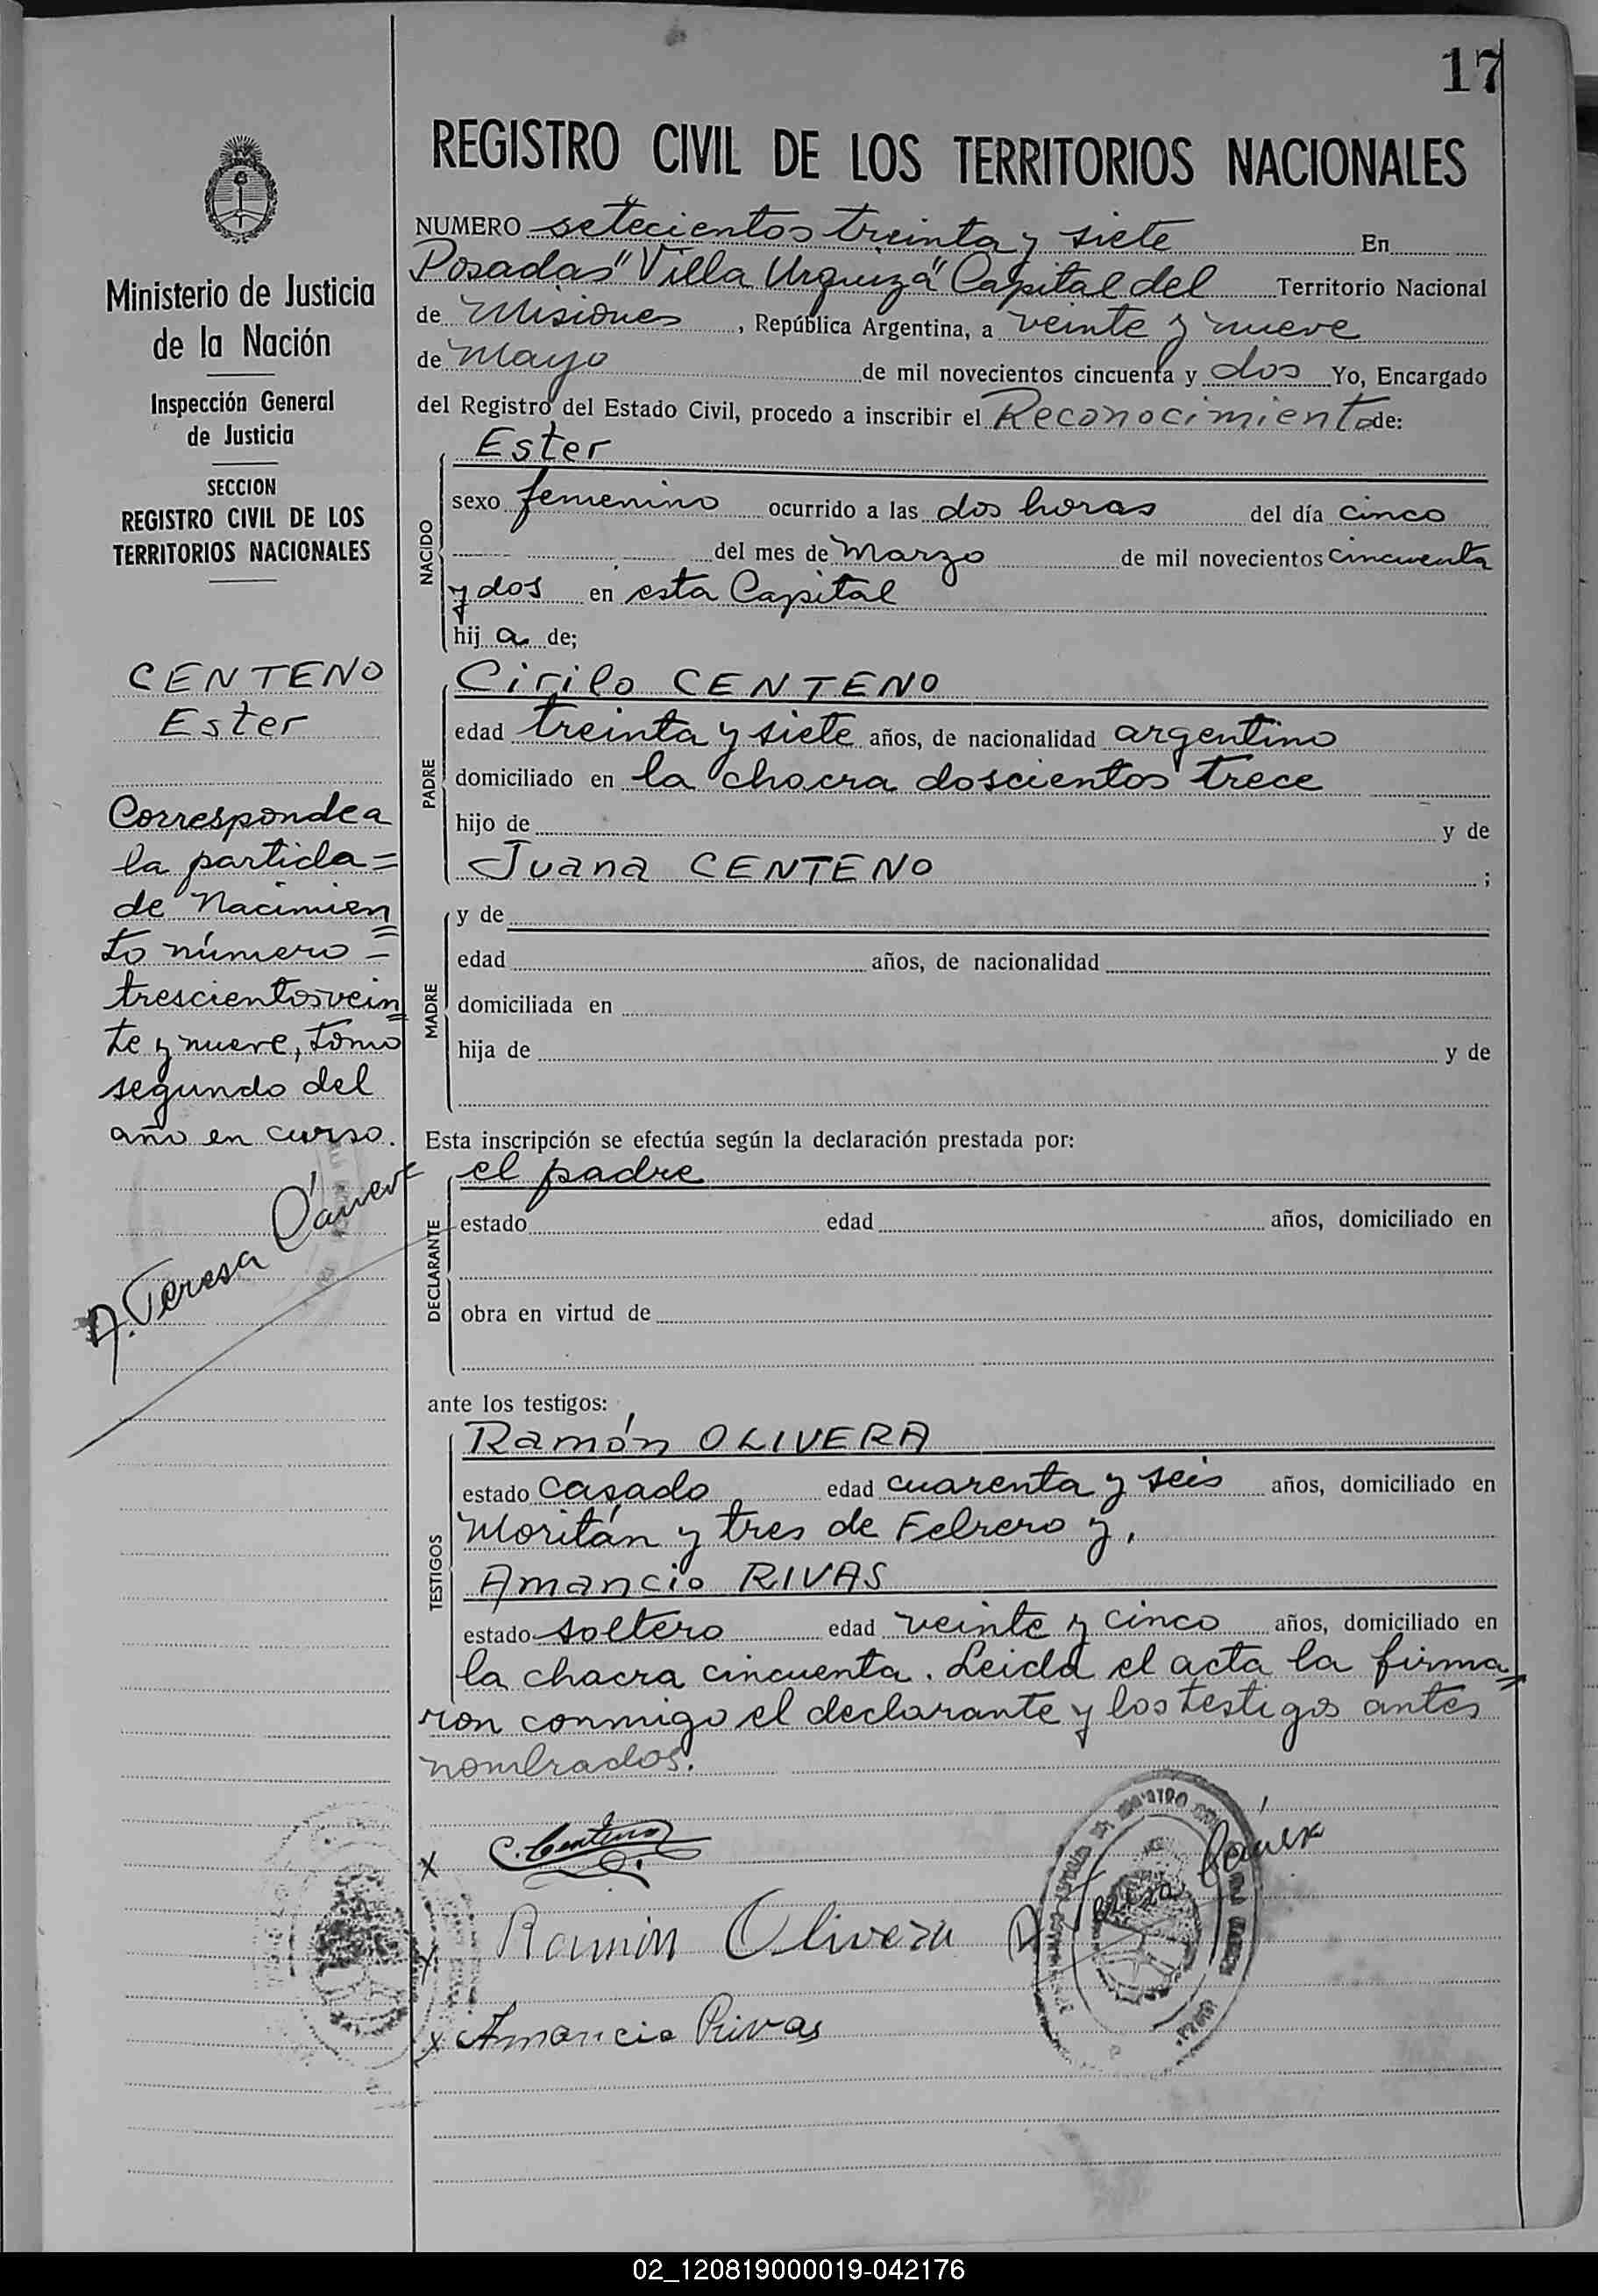 17
REGISTRO CIVIL DE LOS TERRITORIOS NACIONALES
Ministerio de Justicia
de la Nación
Inspección General
de Justicia
SECCION
REGISTRO CIVIL DE LOS
TERRITORIOS NACIONALES
CENTENO
Ester
Corresponde a
la partida =
de Nacimien
to número =
trescientos vein
te y nueve, tomo
segundo del
año en curso.
NUMERO setecientos treinta y siete En
Posadas "Villa Urquiza" Capital del Territorio Nacional
de Misiones, República Argentina, a veinte y nueve
de Mayo de mil novecientos cincuenta y dos Yo, Encargado
del Registro del Estado Civil, procedo a inscribir el Reconocimiento de:
NACIDO
Ester
sexo femenino ocurrido a las dos horas del día cinco
del mes de Marzo de mil novecientos cincuenta
y dos en esta Capital
hij a de;
PADRE
Cirilo CENTENO
edad treinta y siete años, de nacionalidad argentino
domiciliado en la chacra doscientos trece
hijo de y de
Juana CENTENO ;
MADRE
y de
edad años, de nacionalidad
domiciliada en
hija de y de
Esta inscripción se efectúa según la declaración prestada por:
DECLARANTE
el padre
estado edad años, domiciliado en
obra en virtud de
ante los testigos:
TESTIGOS
Ramón OLIVERA
estado casado edad cuarenta y seis años, domiciliado en
Moritán y tres de Febrero y,
Amancio RIVAS
estado soltero edad veinte y cinco años, domiciliado en
la chacra cincuenta. Leida el acta la firma=
ron conmigo el declarante y los testigos antes
nombrados.
x C. Centeno
x Ramón Olivera
x Amancio Rivas
02_120819000019-042176